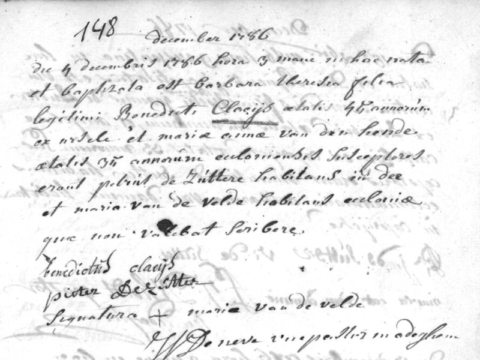 148
december 1786
die 4 decembris 1786 hora 3 mane in hac nata
et baptizata est barbara theresia filia
legitimi Benedicti Claeijs ætatis 45 annorum
ex ursele et mariæ annæ van den hende
ætatis 35 annorum ecloniensis susceptores
erant petrus de Zuttere habitans in dee
et maria van de velde habitans ecloniæ
quæ non valebat scribere.
benedictus claeijs
pieter De Zutter
Signatura + maria van de velde
De neve vicepastor in adeghem